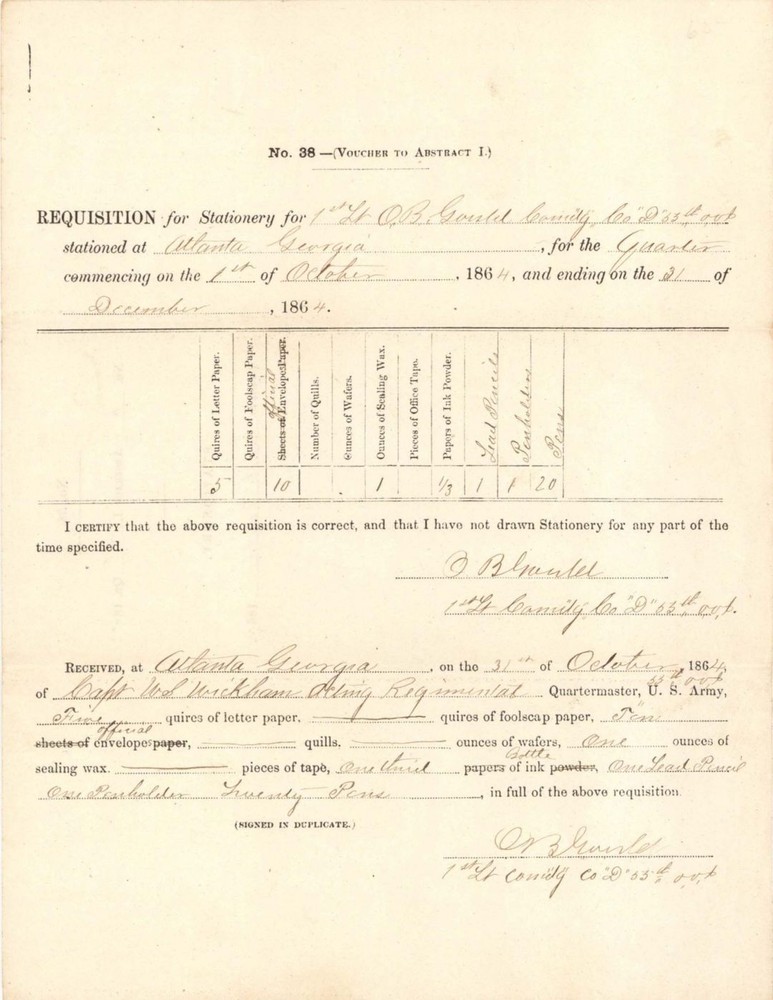 No. 38 —(Voucher to Abstract I.)
REQUISITION for Stationery for 1st Lt O. B. Gould Comdg Co "D" 55th o v i
stationed at Atlanta Georgia, for the Quarter
commencing on the 1st of October, 1864, and ending on the 31 of
December, 1864.
Quires of Letter Paper.
Quires of Foolscap Paper.
official
Sheets of Envelope Paper.
Number of Quills.
Ounces of Wafers.
Ounces of Sealing Wax.
Pieces of Office Tape.
Papers of Ink Powder.
Lead Pencils
Penholders
Pens
5 10 1 1/3 1 1 20
I certify that the above requisition is correct, and that I have not drawn Stationery for any part of the
time specified.
O B Gould
1st Lt Comdg Co "D" 55th o.v.i.
Received, at Atlanta Georgia, on the 31st of October, 1864,
of Capt W. S. Wickham Acting Regimental 55th o v i Quartermaster, U. S. Army,
Five quires of letter paper, quires of foolscap paper, Ten
official
sheets of envelopes paper, quills. ounces of wafers, One ounces of
Bottle
sealing wax. pieces of tape, One third papers of ink powder, One Lead Pencil
One Penholder Twenty Pens, in full of the above requisition.
(SIGNED IN DUPLICATE.)
O B Gould
1st Lt Comdg Co "D" 55th o.v.i